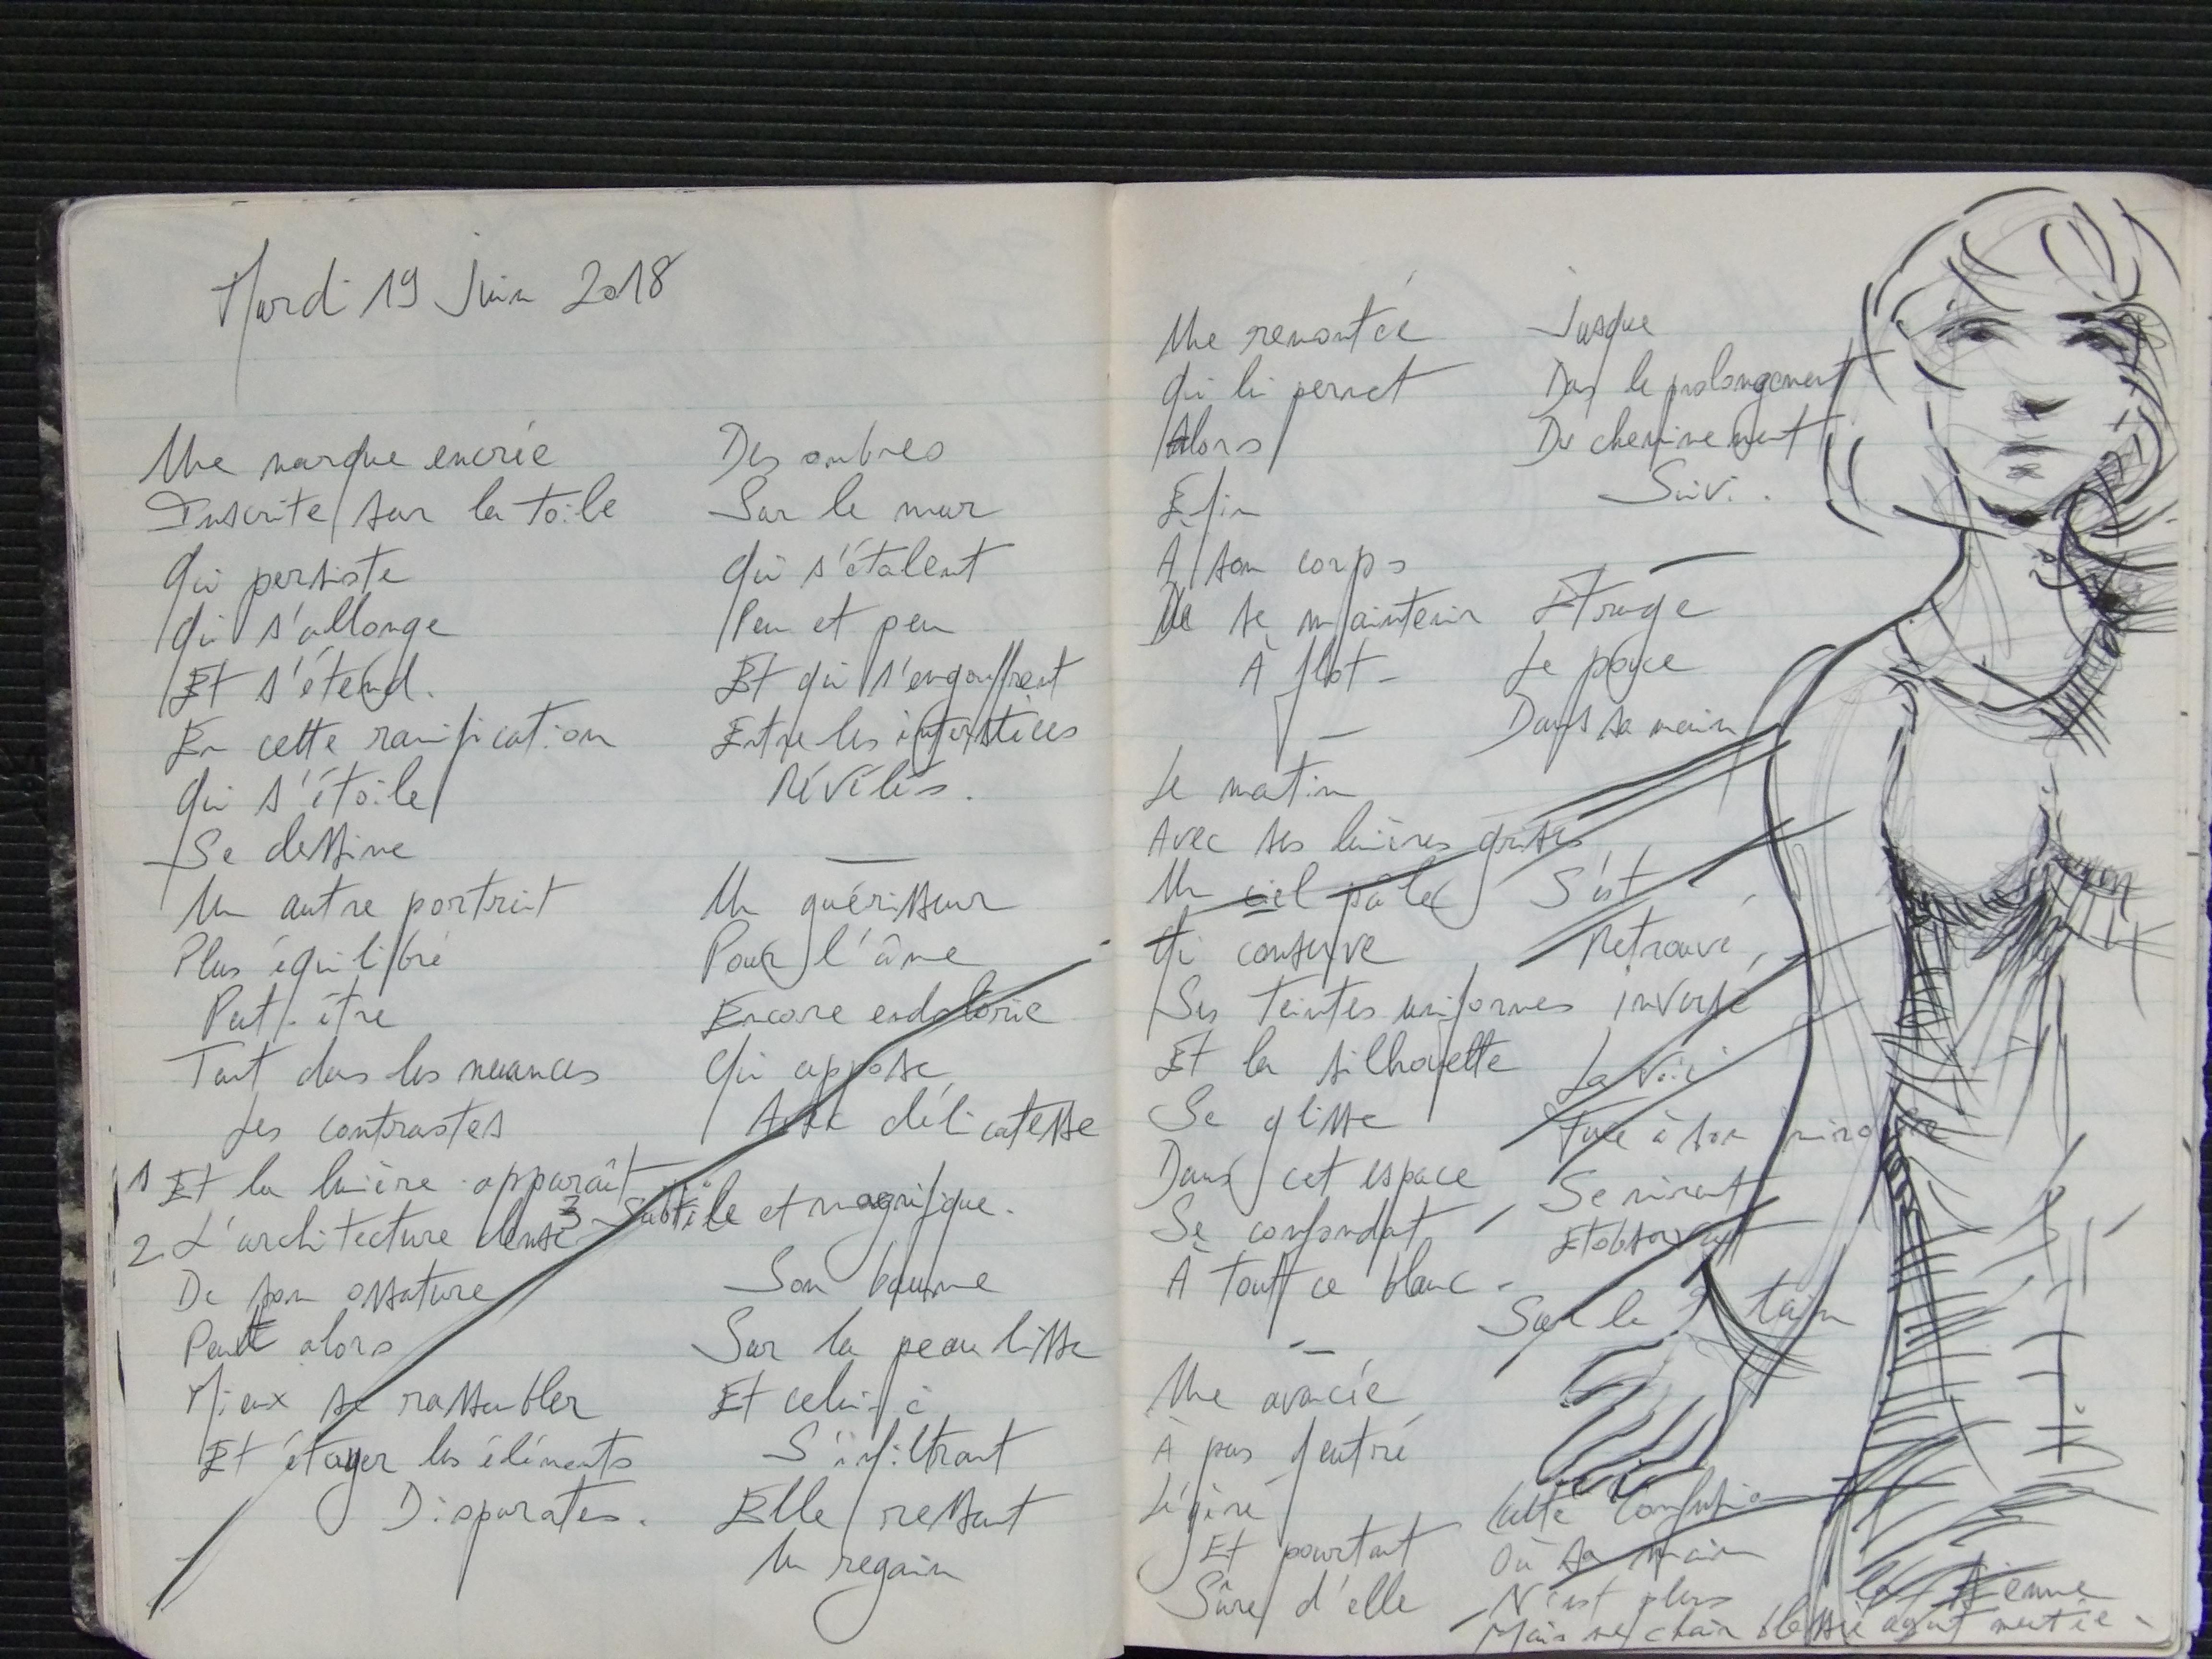 Mardi 19 Juin 2018
Une marque encrée
Inscrite sur la toile
Qui persiste
Qui s'allonge
Et s'étend.
En cette ramification
Qui s'étoile
Se dessine
Un autre portrait
Plus équilibré
Peut-être
Tout dans les nuances
Les contrastes
1 Et la lumière apparaît
2 L'architecture dense
3 Subtile et magnifique.
De son ossature
Peut alors
Mieux se rassembler
Et étayer les éléments
Disparates.
Des ombres
Sur le mur
Qui s'étalent
Peu et peu
Et qui s'engouffrent
Entre les interstices
Révélés.
Un guérisseur
Pour l'âme
Encore endolorie
Qui appose
Avec délicatesse
Son baume
Sur la peau lisse
Et celui-ci
S'infiltrant
Elle ressent
Un regain
Une remontée
Qui lui permet
Alors
Enfin
A son corps
De se maintenir
À flot -
Le matin
Avec ses lumières grises
Un ciel pâle
Qui conserve
Ses teintes uniformes
Et la silhouette
Se glisse
Dans cet espace
Se confondant
À tout ce blanc -
Une avancée
À pas feutré
Légère
Et pourtant
Sûre d'elle
Jusque
Dans le prolongement
Du cheminement
Suivi.
Étrange
Le pouce
Dans sa main
S'est
Retrouvé,
inversé
La voici
Face à son miroir
Se mirant
Et observant
Sur le tain
Cette confusion
Où sa main
N'est plus
la sienne
Mais une chair blessée ayant muté -